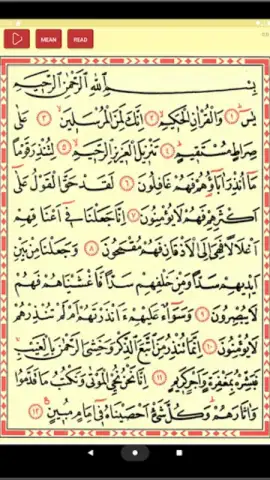 MEAN READ
بِسْمِ اللهِ الرَّحْمٰنِ الرَّحِيمِ
يٰسٓ ﴿١﴾ وَالْقُرْاٰنِ الْحَكِيمِ ﴿٢﴾ اِنَّكَ لَمِنَ الْمُرْسَلِينَ ﴿٣﴾ عَلٰى
صِرَاطٍ مُسْتَقِيمٍ ﴿٤﴾ تَنْزِيلَ الْعَزِيزِ الرَّحِيمِ ﴿٥﴾ لِتُنْذِرَ قَوْمًا
مَا اُنْذِرَ اٰبَاؤُهُمْ فَهُمْ غَافِلُونَ ﴿٦﴾ لَقَدْ حَقَّ الْقَوْلُ عَلٰى
اَكْثَرِهِمْ فَهُمْ لَا يُؤْمِنُونَ ﴿٧﴾ اِنَّا جَعَلْنَا فِى اَعْنَاقِهِمْ
اَغْلَالًا فَهِىَ اِلَى الْاَذْقَانِ فَهُمْ مُقْمَحُونَ ﴿٨﴾ وَجَعَلْنَا مِنْ بَيْنِ
اَيْدِيهِمْ سَدًّا وَمِنْ خَلْفِهِمْ سَدًّا فَاَغْشَيْنَاهُمْ فَهُمْ
لَا يُبْصِرُونَ ﴿٩﴾ وَسَوَاءٌ عَلَيْهِمْ ءَاَنْذَرْتَهُمْ اَمْ لَمْ تُنْذِرْهُمْ
لَا يُؤْمِنُونَ ﴿١٠﴾ اِنَّمَا تُنْذِرُ مَنِ اتَّبَعَ الذِّكْرَ وَخَشِىَ الرَّحْمٰنَ بِالْغَيْبِ
فَبَشِّرْهُ بِمَغْفِرَةٍ وَاَجْرٍ كَرِيمٍ ﴿١١﴾ اِنَّا نَحْنُ نُحْىِ الْمَوْتٰى وَنَكْتُبُ مَا قَدَّمُوا
وَاٰثَارَهُمْ وَكُلَّ شَىْءٍ اَحْصَيْنَاهُ فِى اِمَامٍ مُبِينٍ ﴿١٢﴾